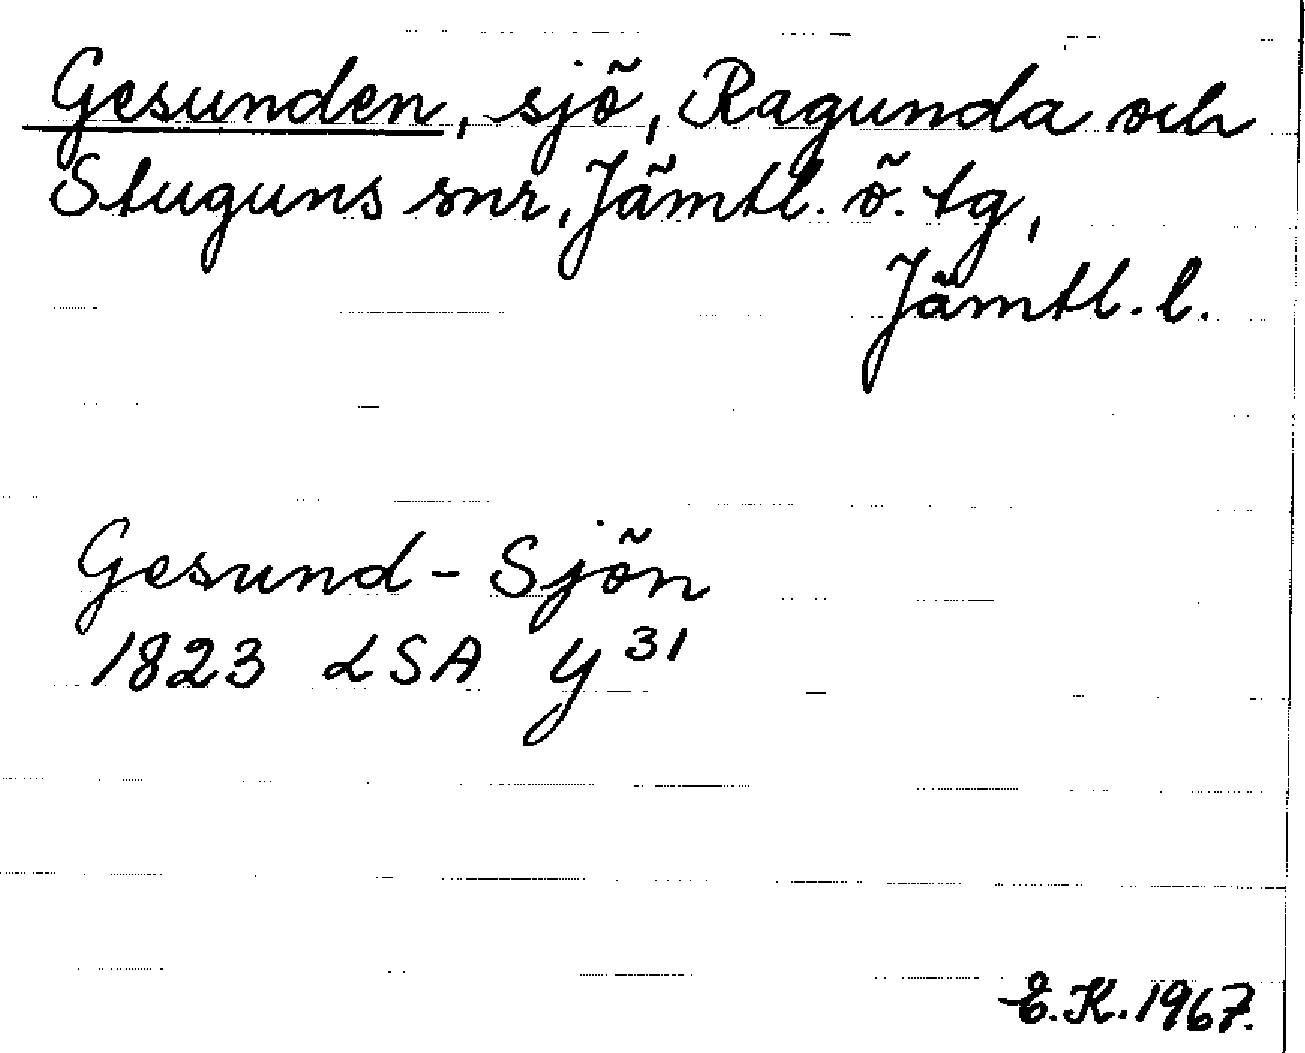 Gesunden, sjö, Ragunda och
Stuguns snr, Jämtl. ö. tg,
Jämtl. l.
Gesund-Sjön
1823 LSA Y 31
E.K. 1967.